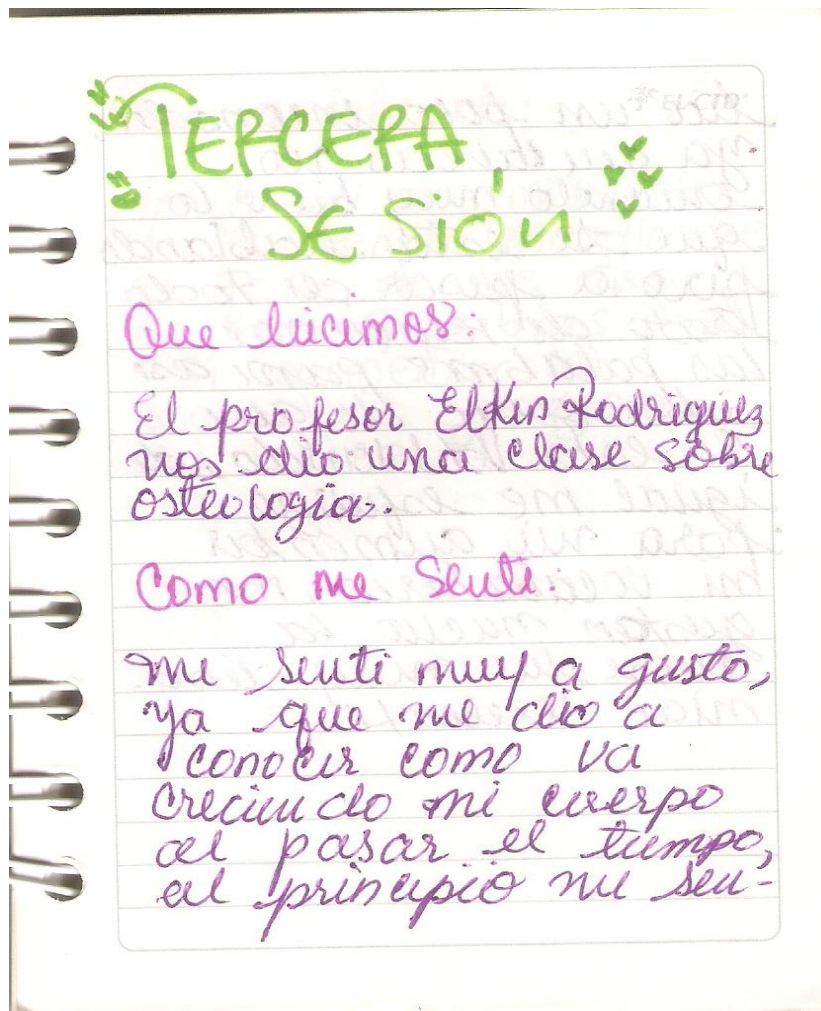 TERCERA
SESIÓN
Que hicimos:
El profesor Elkin Rodriguez
nos dio una clase sobre
osteologia.
Como me senti:
me senti muy a gusto,
ya que me dio a
conocer como va
creciendo mi cuerpo
al pasar el tiempo,
al principio me sen-